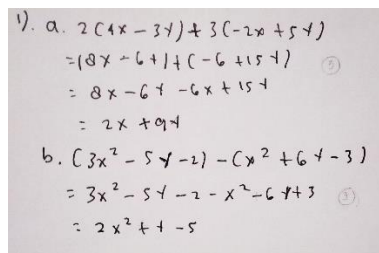 1). a. 2(4x - 3y) + 3(-2x + 5y)
= (8x - 6y) + (-6 + 15y)
= 8x - 6y - 6x + 15y
= 2x + 9y
b. (3x² - 5y - 2) - (x² + 6y - 3)
= 3x² - 5y - 2 - x² - 6y + 3
= 2x² + y - 5